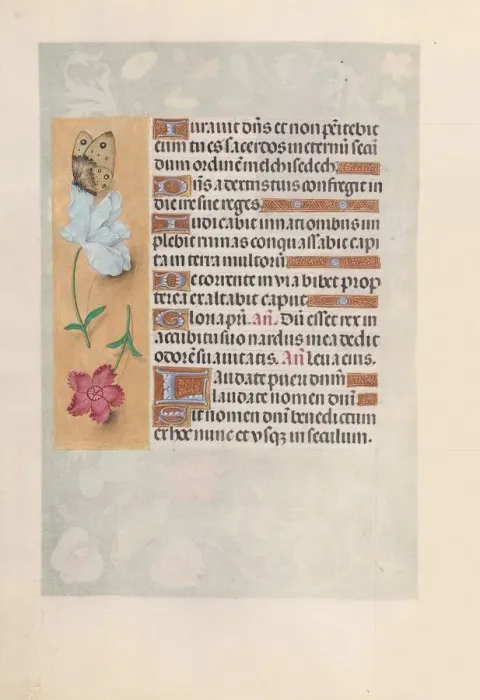 Iurauit dn̄s et non pēitebit
eum tu es sacerdos in eternū secū
dum ordinē melchisedech.
Dn̄s a dextris tuis confregit in
die ire sue reges.
Iudicabit in nationibus im
plebit ruinas conquassabit capi
ta in terra multorū
De torrente in via bibet prop
terea exaltabit caput
Gloria pr̄i. Añ. Dū esset rex in
accubitu suo nardus mea dedit
odorē suauitatis. Añ Leua eius.
Laudate pueri dn̄m
laudate nomen dn̄i
Sit nomen dn̄i benedictum
ex hoc nunc et vsqȝ in seculum.